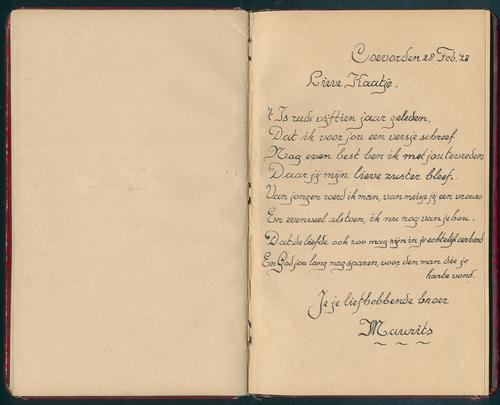 Coevorden 28 Feb. '28
Lieve Kaatje.
't Is reeds vijftien jaar geleden,
Dat ik voor jou een versje schreef
Nog even best ben ik met jou tevreden
Daar jij mijn lieve zuster bleef.
Van jongen werd ik man, van meisje jij een vrouw
En evenveel als toen, ik nu nog van je hou.
Dat de liefde ook zoo mag zijn in je echtelijk verbond
En God jou lang mag sparen, voor den man die je
harte vond.
Je je liefhebbende broer
Maurits